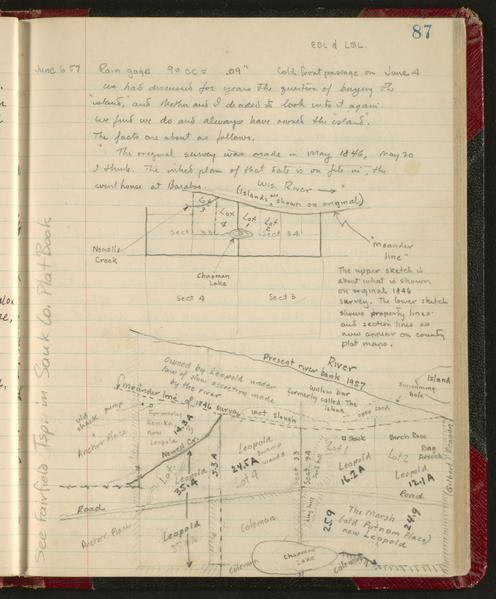 87
EBL & LBL
June 6 57 Rain gage 90 cc = .09" Cold front passage on June 4
We had discussed for years the question of buying the
"island," and Shotha and I decided to look into it again.
We find we do and always have owned the "island".
The facts are about as follows.
The original survey was made in May 1846, May 20
I think. The inked plan of that date is on file in the
court house at Baraboo.
Wis. River →
(Islands are shown on original)
Lot 3
Lot 4
Lot 1
Lot 2
Sect 33
Sect 34
Newells Creek
"meander line"
Chapman Lake
Sect 4
Sect 3
The upper sketch is
about what is shown
on original 1846
survey. The lower sketch
shows property lines
and section lines as
now appear on county
plat maps.
See Fairfield Tsp. in Sauk Co. Plat Book
River
Present river bank 1957
Owned by Leopold under
law of slow accretion made
by the river
willow bar
formerly called The Island
Island
swimming hole
open sand
meander line of 1846 survey
wet slough
old shack pump
Anchor Place
Formerly
now Leopold
14.3 A
Newell Cr.
Lot 3
Leopold
35.4
5.3 A
Leopold
24.5 A
swamp woods
Lot 4
Sect. 33
Sect. 34
Sand hill
Lot 1
Shack
Leopold
16.2 A
Birch Row
Lot 2
Leopold
12.1 A
Road
(Gilbert)
Road
Anchor Place
Leopold
Coleman
25.9
The Marsh
(old Putnam Place)
now Leopold
24.9
Coleman
Chapman Lake
Coleman